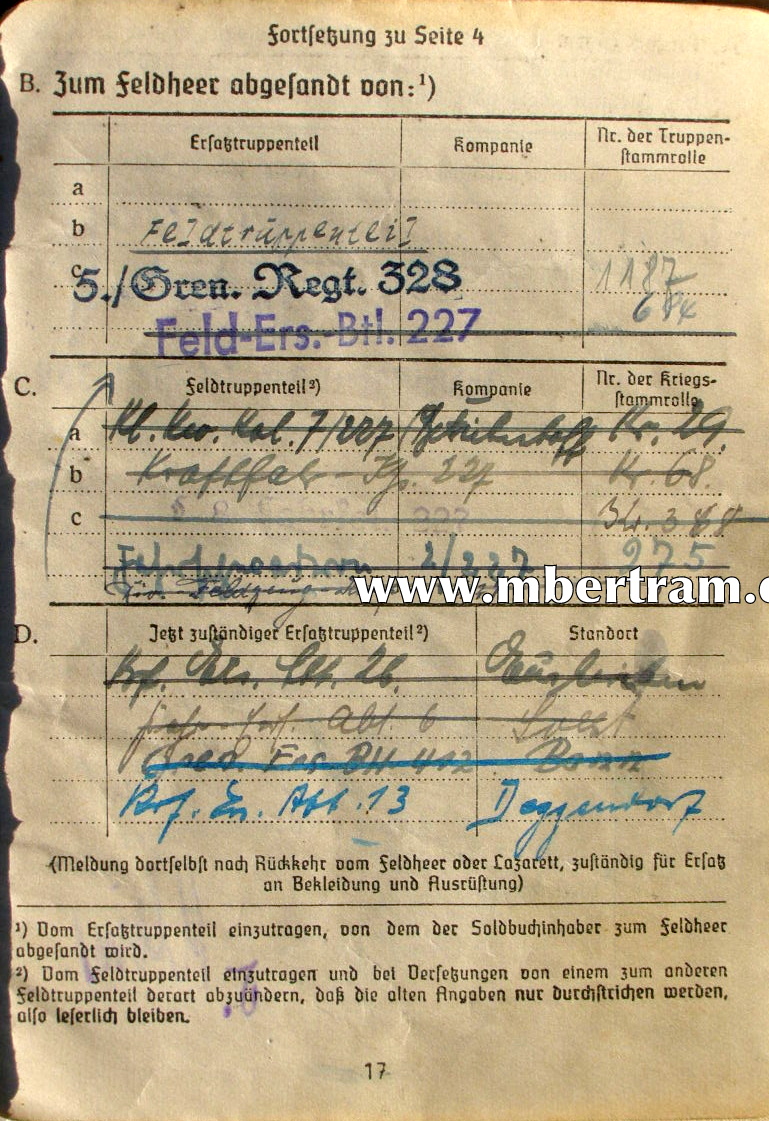 Fortsetzung zu Seite 4
B. Zum Feldheer abgesandt von:¹)
Ersatztruppenteil Kompanie Nr. der Truppen-
stammrolle
a
b Feldtruppenteil
c 5./Gren. Regt. 328 1187
684
Feld-Ers.-Btl. 227
C. Feldtruppenteil²) Kompanie Nr. der Kriegs-
stammrolle
a Kl. Kw. Kol. 7/227 Nr. 29.
b 227 Nr. 68.
c 227 368
2/227 275
www.mbertram.d
D. Jetzt zuständiger Ersatztruppenteil²) Standort
Krf. Ers. Abt. 26.
Abt. 6 Soest
Gren. Ers. Btl. 402 Bonn
Krf. Ers. Abt. 13 Deggendorf
(Meldung dortselbst nach Rückkehr vom Feldheer oder Lazarett, zuständig für Ersatz
an Bekleidung und Ausrüstung)
¹) Vom Ersatztruppenteil einzutragen, von dem der Soldbuchinhaber zum Feldheer
abgesandt wird.
²) Vom Feldtruppenteil einzutragen und bei Versetzungen von einem zum anderen
Feldtruppenteil derart abzuändern, daß die alten Angaben nur durchstrichen werden,
also leserlich bleiben.
17